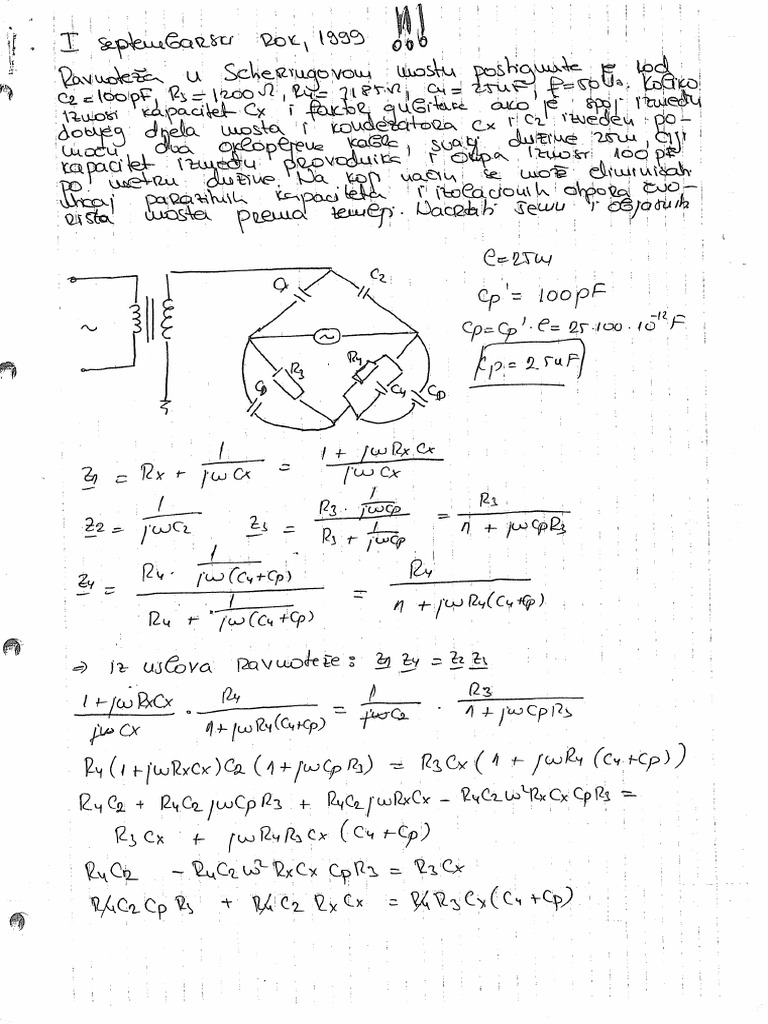 I septembarski rok, 1999 !!!
Ravnoteža u Scheringovom mostu postignuta je kod
C2=100pF, R3=1200Ω, R4=3185Ω, C4=25nF, f=50Hz. Koliko
iznosi kapacitet Cx i faktor gubitaka ako je spoj između
donjeg djela mosta i kondezatora Cx i C2 izveden po-
moću dva oklopljena kabla, svaki dužine 25m, čiji
kapacitet između provodnika i okopa iznosi 100pF
po metru dužine. Na koji način se može eliminisati
uticaj parazitnih kapaciteta i izolacionih otpora čvo-
rišta mosta prema zemlji. Nacrtati šemu i objasniti
l=25m
Cp' = 100pF
Cp=Cp'·l=25·100·10^-12 F
Cp=2,5nF
~
C2
~
R3
R4
C4
Cp
Cp
Z1 = Rx + 1/(jωCx) = (1 + jωRxCx)/(jωCx)
Z2 = 1/(jωC2) Z3 = (R3 · 1/(jωCp))/(R3 + 1/(jωCp)) = R3/(1 + jωCpR3)
Z4 = (R4 · 1/(jω(C4+Cp)))/(R4 + 1/(jω(C4+Cp))) = R4/(1 + jωR4(C4+Cp))
⇒ iz uslova ravnoteže: Z1 Z4 = Z2 Z3
(1+jωRxCx)/(jωCx) · R4/(1+jωR4(C4+Cp)) = 1/(jωC2) · R3/(1+jωCpR3)
R4(1+jωRxCx)C2(1+jωCpR3) = R3Cx(1+jωR4(C4+Cp))
R4C2 + R4C2jωCpR3 + R4C2jωRxCx - R4C2ω²RxCxCpR3 =
R3Cx + jωR4R3Cx(C4+Cp)
R4C2 - R4C2ω²RxCxCpR3 = R3Cx
R4C2CpR3 + R4C2RxCx = R4R3Cx(C4+Cp)